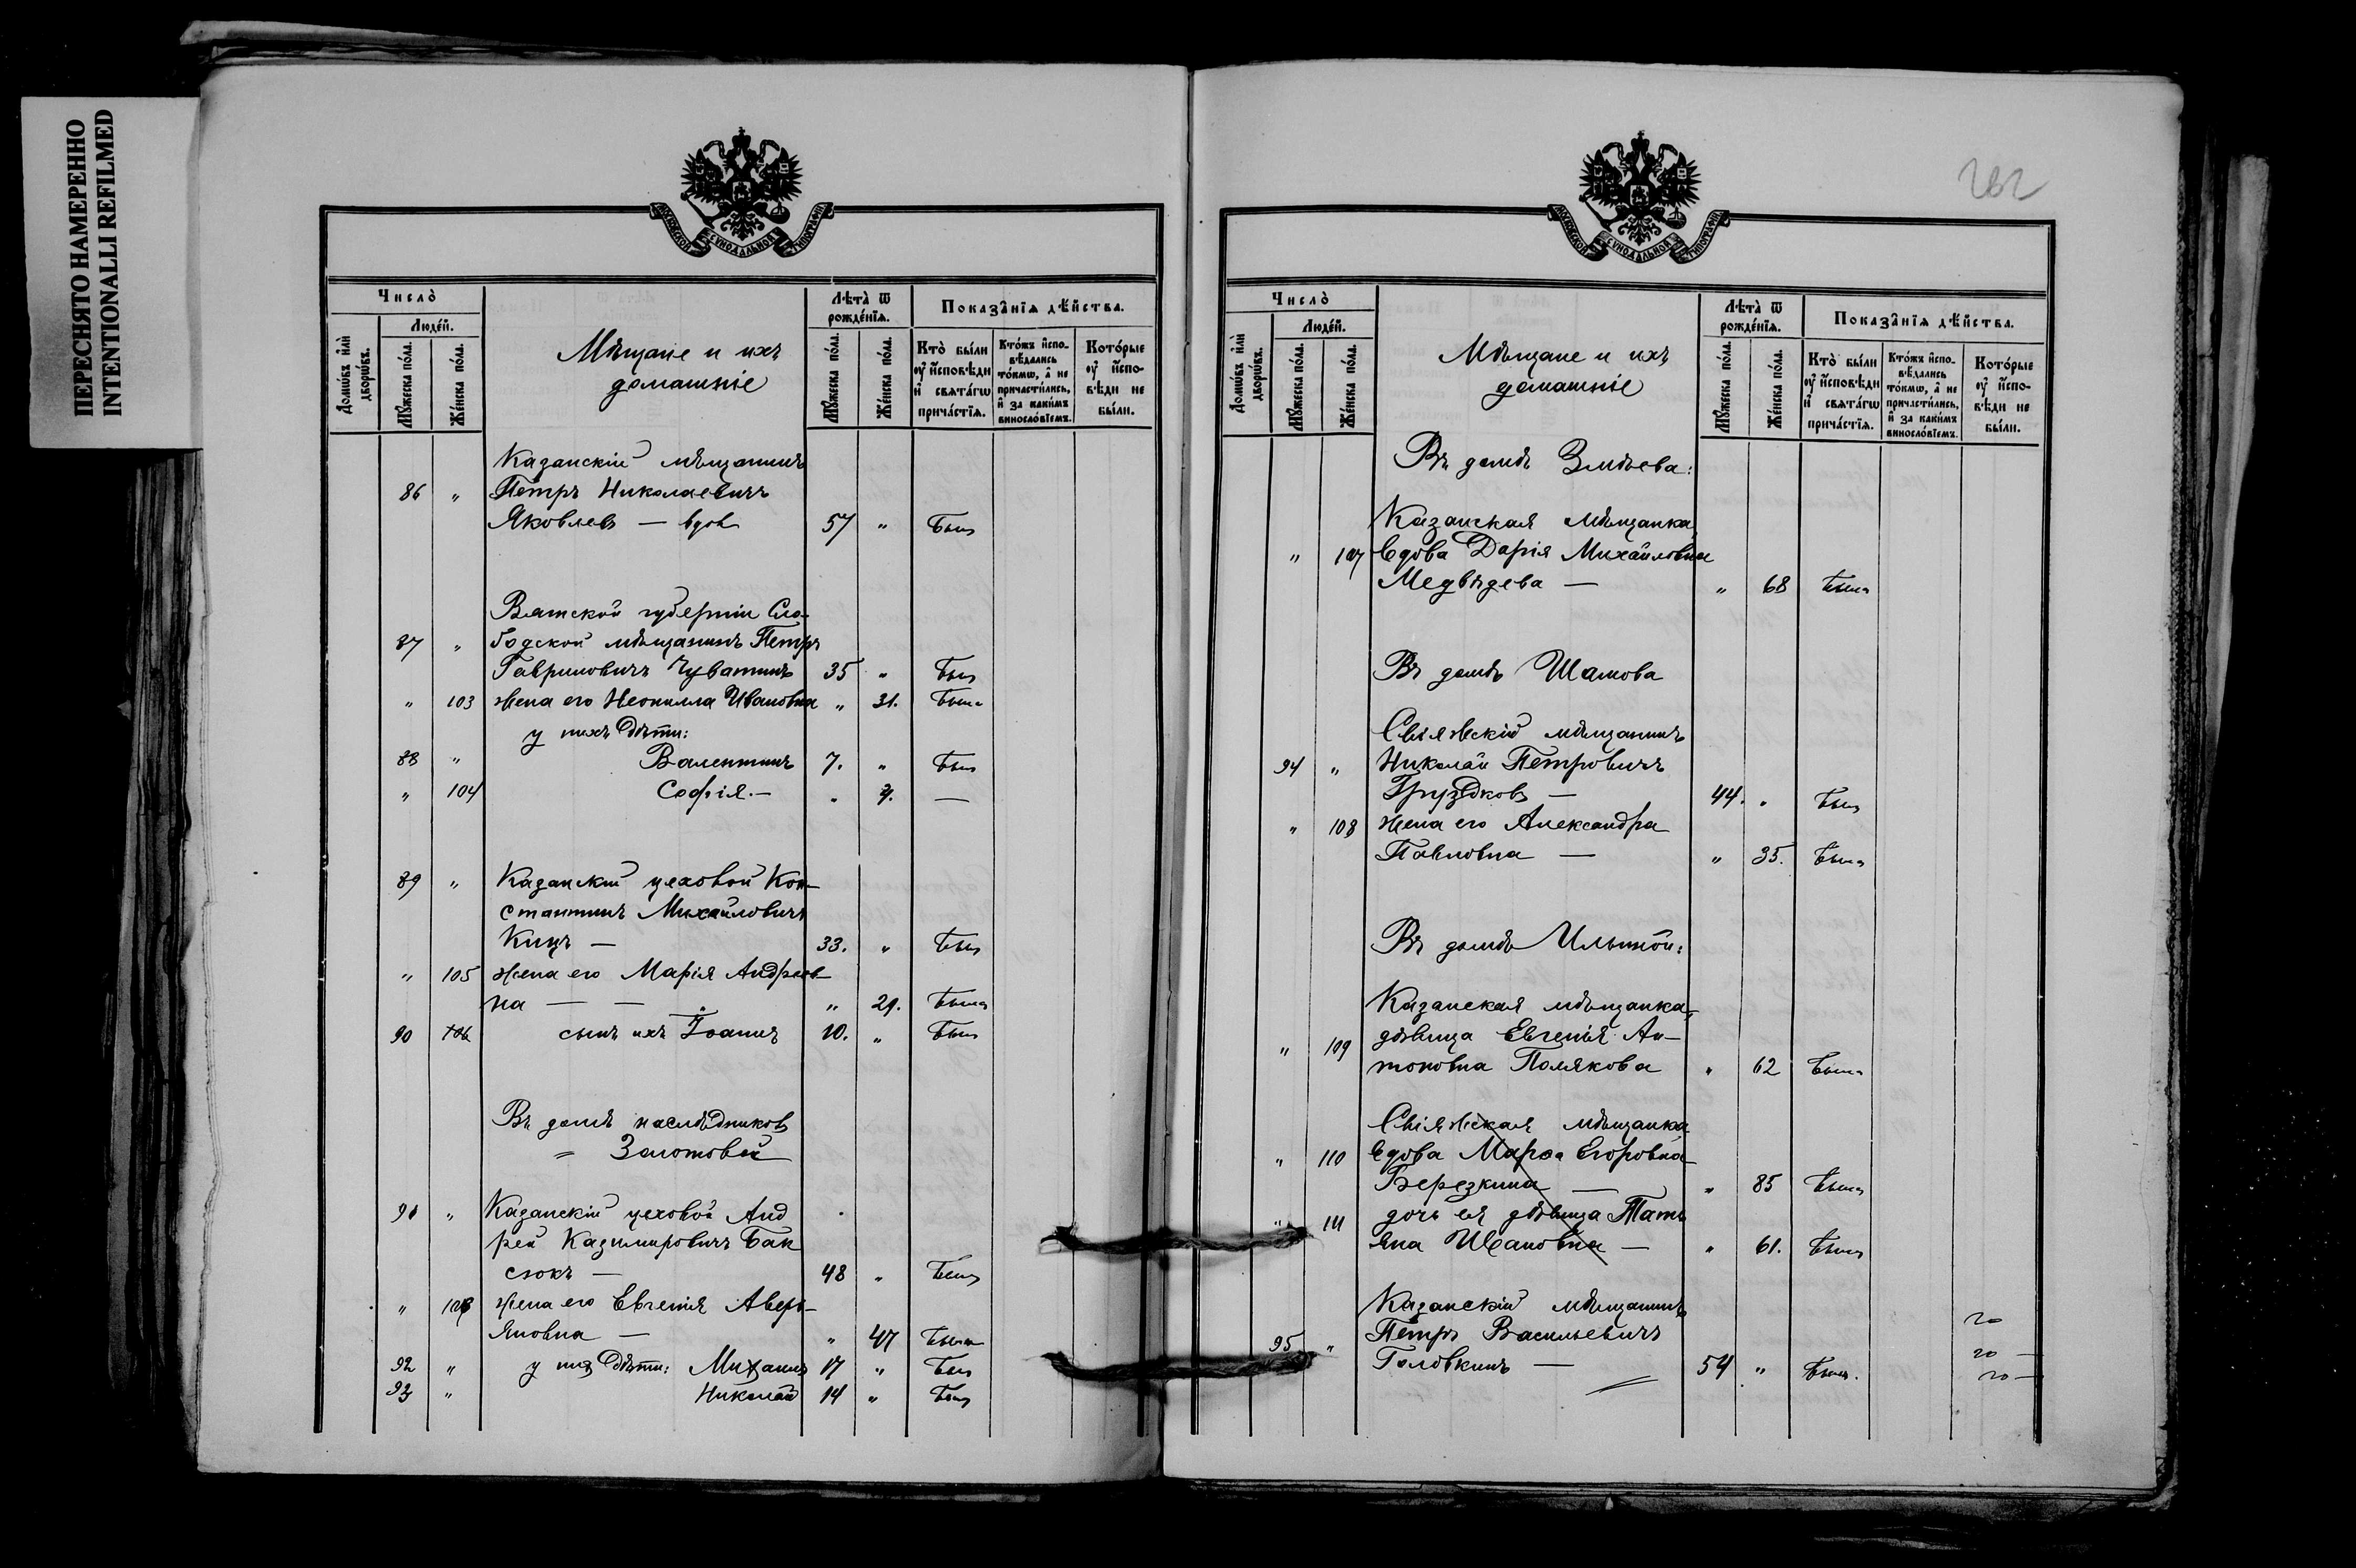 ПЕРЕСНЯТО НАМЕРЕННО
INTENTIONALLI REFILMED
МОСКОВСКОЙ СѴНОДАЛЬНОЙ ТИПОГРАФІИ
Число̀
Люде́й.
Домѡ́въ и҆лѝ дворѡ́въ.
Мꙋ́жеска по́ла.
Же́нска по́ла.
Мѣщане и ихъ
домашніе
Лѣта̀ ѿ
рожде́нїѧ.
Мꙋ́жеска по́ла.
Же́нска по́ла.
Показа̑нїѧ дѣ́йства.
Кто̀ бы́ли
оу҆ и҆сповѣди
и҆ свѧта́гѡ
прича́стїѧ.
Кто́жъ и҆спо-
вѣдались
то́кмѡ, а҆ не
причасти́лись,
и҆ за каки́мъ
винослов́їемъ.
Кото́рые
оу҆ и҆спо-
вѣди не
бы́ли.
Казанскій мѣщанинъ
86 " Петръ Николаевичъ
Яковлевъ — вдов 57 " Былъ
Вятской губерніи Сло-
87 " бодской мѣщанинъ Петръ
Гавриловичъ Чуватинъ 35 " Былъ
" 103 жена его Неонилла Ивановна " 31. Была
у нихъ дѣти:
88 " Валентинъ 7. " Былъ
" 104 Софія. — " 4. —
89 " Казанскій цеховой Кон-
стантинъ Михайловичъ
Кицъ — 33. " Былъ
" 105 жена его Марія Андреев-
на — — " 29. Была
90 106 сынъ ихъ Іоаннъ 10. " Былъ
Въ домѣ наслѣдниковъ
= Золотовой
91 " Казанскій цеховой Анд
рей Казимировичъ Бак
сюкъ — 48 " Былъ
" 106 жена его Евгенія Аверь-
яновна — " 47 Была
92 " у них дѣти: Михаилъ 17 " Былъ
93 " Николай 14 " Былъ
262
МОСКОВСКОЙ СѴНОДАЛЬНОЙ ТИПОГРАФІИ
Число̀
Люде́й.
Домѡ́въ и҆лѝ дворѡ́въ.
Мꙋ́жеска по́ла.
Же́нска по́ла.
Мѣщане и ихъ
домашніе
Лѣта̀ ѿ
рожде́нїѧ.
Мꙋ́жеска по́ла.
Же́нска по́ла.
Показа̑нїѧ дѣ́йства.
Кто̀ бы́ли
оу҆ и҆сповѣди
и҆ свѧта́гѡ
прича́стїѧ.
Кто́жъ и҆спо-
вѣдались
то́кмѡ, а҆ не
причасти́лись,
и҆ за каки́мъ
винослов́їемъ.
Кото́рые
оу҆ и҆спо-
вѣди не
бы́ли.
Въ домѣ Змѣева:
Казанская мѣщанка
" 107 вдова Дарія Михайловна
Медвѣдева — " 68 Была
Въ домѣ Шамова
Свіяжскій мѣщанинъ
94 " Николай Петровичъ
Груздковъ — 44. " Былъ
" 108 жена его Александра
Павловна — " 35. Была
Въ домѣ Ильиной:
Казанская мѣщанка,
" 109 дѣвица Евгенія Ан-
тоновна Полякова " 62 Была
Свіяжская мѣщанка
" 110 вдова Марѳа Егоровна
Березкина — " 85 Была
" 111 дочь ея дѣвица Тать
яна Ивановна — " 61. Была
Казанскій мѣщанинъ
95 " Петръ Васильевичъ
Головкинъ — 54 " Былъ.
20
20 —
20 —